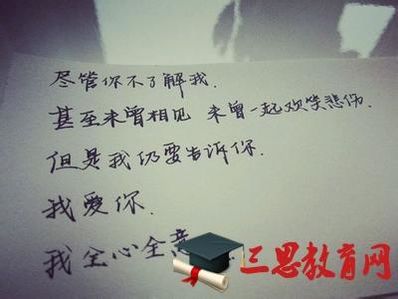 尽管你不了解我.
甚至未曾相见 未曾一起欢笑悲伤.
但是我仍要告诉你.
我爱你.
我全心全意
三思教育网